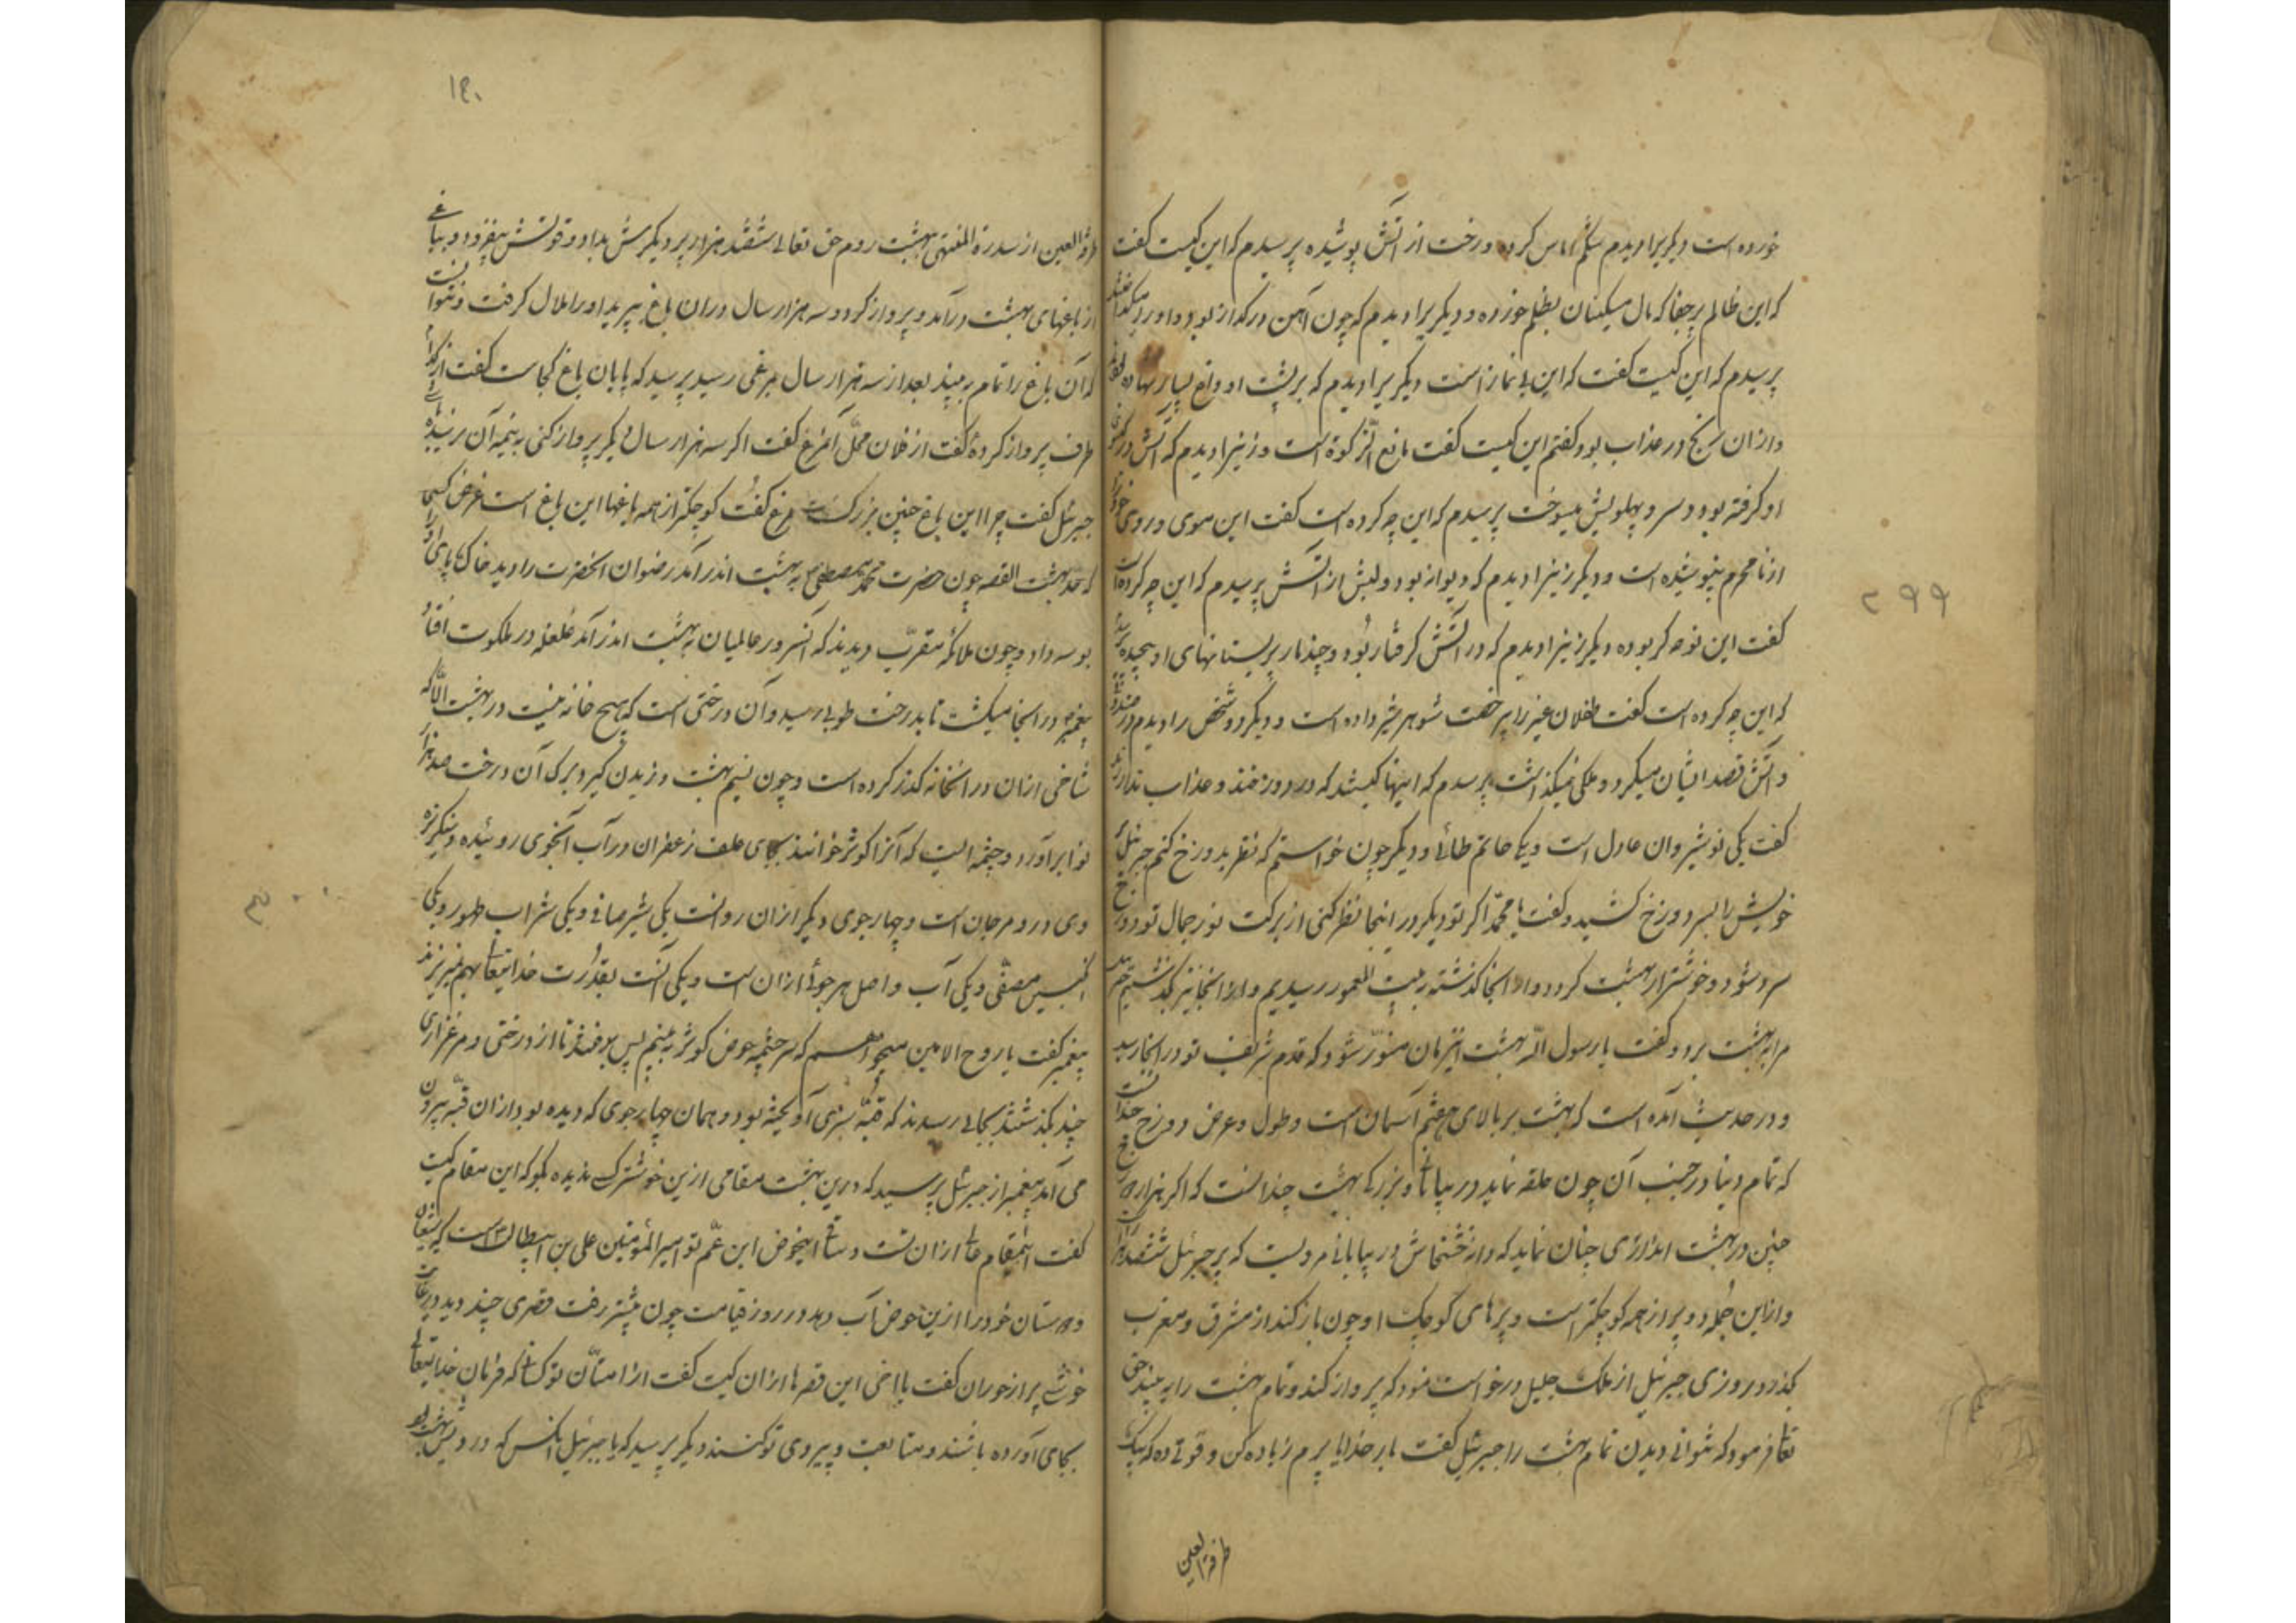 خورده است دیکریرا دیدم شکم اماس کرده و رخت از آتش پوشیده پرسیدم که این کیست کفت
که این ظالم پرجفا که مال مسکینان بظلم خورده و دیکریرا دیدم که چون آهن در کداز بود و او را میکداختند
پرسیدم که این کیست کفت که این بی نماز است دیکریرا دیدم که بر پشت او داغ بسیار نهاده بودند
و ازان رنج در عذاب بود کفتم این کیست کفت مانع الزکوة است و زنیرا دیدم که آتش در
او کرفته بود و سر و پهلویش میسوخت پرسیدم که این چه کرده است کفت این موی و روی خود
از نامحرم نپوشیده است و دیکر زنیرا دیدم که دیوانه بود و لبش از آتش پرسیدم که این چه کرده است
کفت این نوحه کر بوده دیکر زنیرا دیدم که در آتش کرفتار بود و چند مار بر پستانهای او پیچیده
که این چه کرده است کفت طفلان غیر را بی رخصت شوهر شیر داده است و دیکر دو شخص را دیدم در
و آتش قصد ایشان میکرد و ملکی نمیکذاشت پرسیدم که اینها کیستند که در دوزخند و عذاب ندارند
کفت یکی نوشیروان عادل است و یکی حاتم طائی و دیکر چون خواستم که نظر بدوزخ کنم جبرئیل
خویش را بسر دوزخ کشید و کفت یا محمد اکر تو دیکر در اینجا نظر کنی از برکت نور جمال تو دوزخ
سرد شود و خوشتر از بهشت کردد و از انجا کذشته به بیت المعمور رسیدیم و از انجا نیز بکذشتیم
مرا به بهشت برد و کفت یا رسول الله بهشت انزمان منور شود که قدم شریف تو در انجا رسد
و در حدیث آمده است که بهشت بر بالای هفتم آسمان است و طول و عرض دوزخ چندانست
که تمام دنیا در جنب آن چون حلقه نماید در بیابان و بزرکی بهشت چندانست که اکر هزار دوزخ
چنین در بهشت اندازی چنان نماید که دانه خشخاش در بیابانی مرویست که پر جبرئیل ششصد هزار
و از این جمله دو پر از همه کوچکتر است و پرهای کوچک او چون باز کند از مشرق و مغرب
بکذرد و روزی جبرئیل از ملک جلیل درخواست نمود که پرواز کند و تمام بهشت را به بیند حق
تعالی فرمود که نتوانی دیدن تمام بهشت را جبرئیل کفت بار خدایا پرم زیاده کن و قوتی ده که بیک
طرفة العین
۲۹۹
۱۴۰
طرفة العین از سدرة المنتهی ببهشت روم حق تعالی ششصد هزار پر دیکرش بداد و قوتش بیفزود و بباغی
از باغهای بهشت درآمد و پرواز کرد و سه هزار سال دران باغ بپرید او را ملال کرفت و نتوانست
که آن باغ را تمام به بیند بعد از سه هزار سال بمرغی رسید پرسید که پایان باغ کجاست کفت از کدام
طرف پرواز کردۀ کفت از فلان محل آنمرغ کفت اکر سه هزار سال دیکر پرواز کنی به نیمه آن نرسیده
جبرئیل کفت چرا این باغ چنین بزرکست مرغ کفت کوچکتر از همه باغها این باغ است غرض کسی
که حد بهشت القصه چون حضرت محمد مصطفی به بهشت اندر آمد رضوان انحضرت را دید خاک پای او را
بوسه داد و چون ملائکه مقرب دیدند که آنسرور عالمیان به بهشت اندر آمد غلغله در ملکوت افتاد
پیغمبر در انجا میکشت تا بدرخت طوبی رسید و آن درختی است که هیچ خانه نیست در بهشت الا که
شاخی ازان در انخانه کذر کرده است و چون نسیم بهشت وزیدن کیرد برک آن درخت صد هزار
نوا برآورد و چشمه ایست که آنرا کوثر خوانند بجای علف زعفران در آب آنجوی روئیده و سنکریزه
وی در و مرجان است و چهار جوی دیکر ازان روانست یکی شیر صافی و یکی شراب طهور و یکی
انکبین مصفی و یکی آب و اصل هر جوئی ازان است و یکی آنست بقدرت خدایتعالی بهم نمیریزند
پیغمبر کفت یا روح الامین میخواهم که سر چشمه حوض کوثر به بینم پس برفتند تا از درختی و مرغزاری
چند بکذشتند بجائی رسیدند که قبه سبزی آویخته بود و همان چهار جوی که دیده بود ازان قبه بیرون
می آمد پیغمبر از جبرئیل پرسید که درین بهشت مقامی ازین خوشترک ندیده بکو که این مقام کیست
کفت اینمقام عالی ازان تست و ساقی اینحوض ابن عم تو امیرالمؤمنین علی بن ابیطالب است که
دوستان خود را ازین حوض آب دهد در روز قیامت چون پیشتر رفت قصری چند دید در غایت
خوشی پر از حوران کفت یا اخی این قصرها ازان کیست کفت از امتان تو کسانیکه فرمان خدایتعالی
بجای آورده باشند و متابعت و پیروی تو کنند دیکر پرسید که یا جبرئیل انکس که درویش